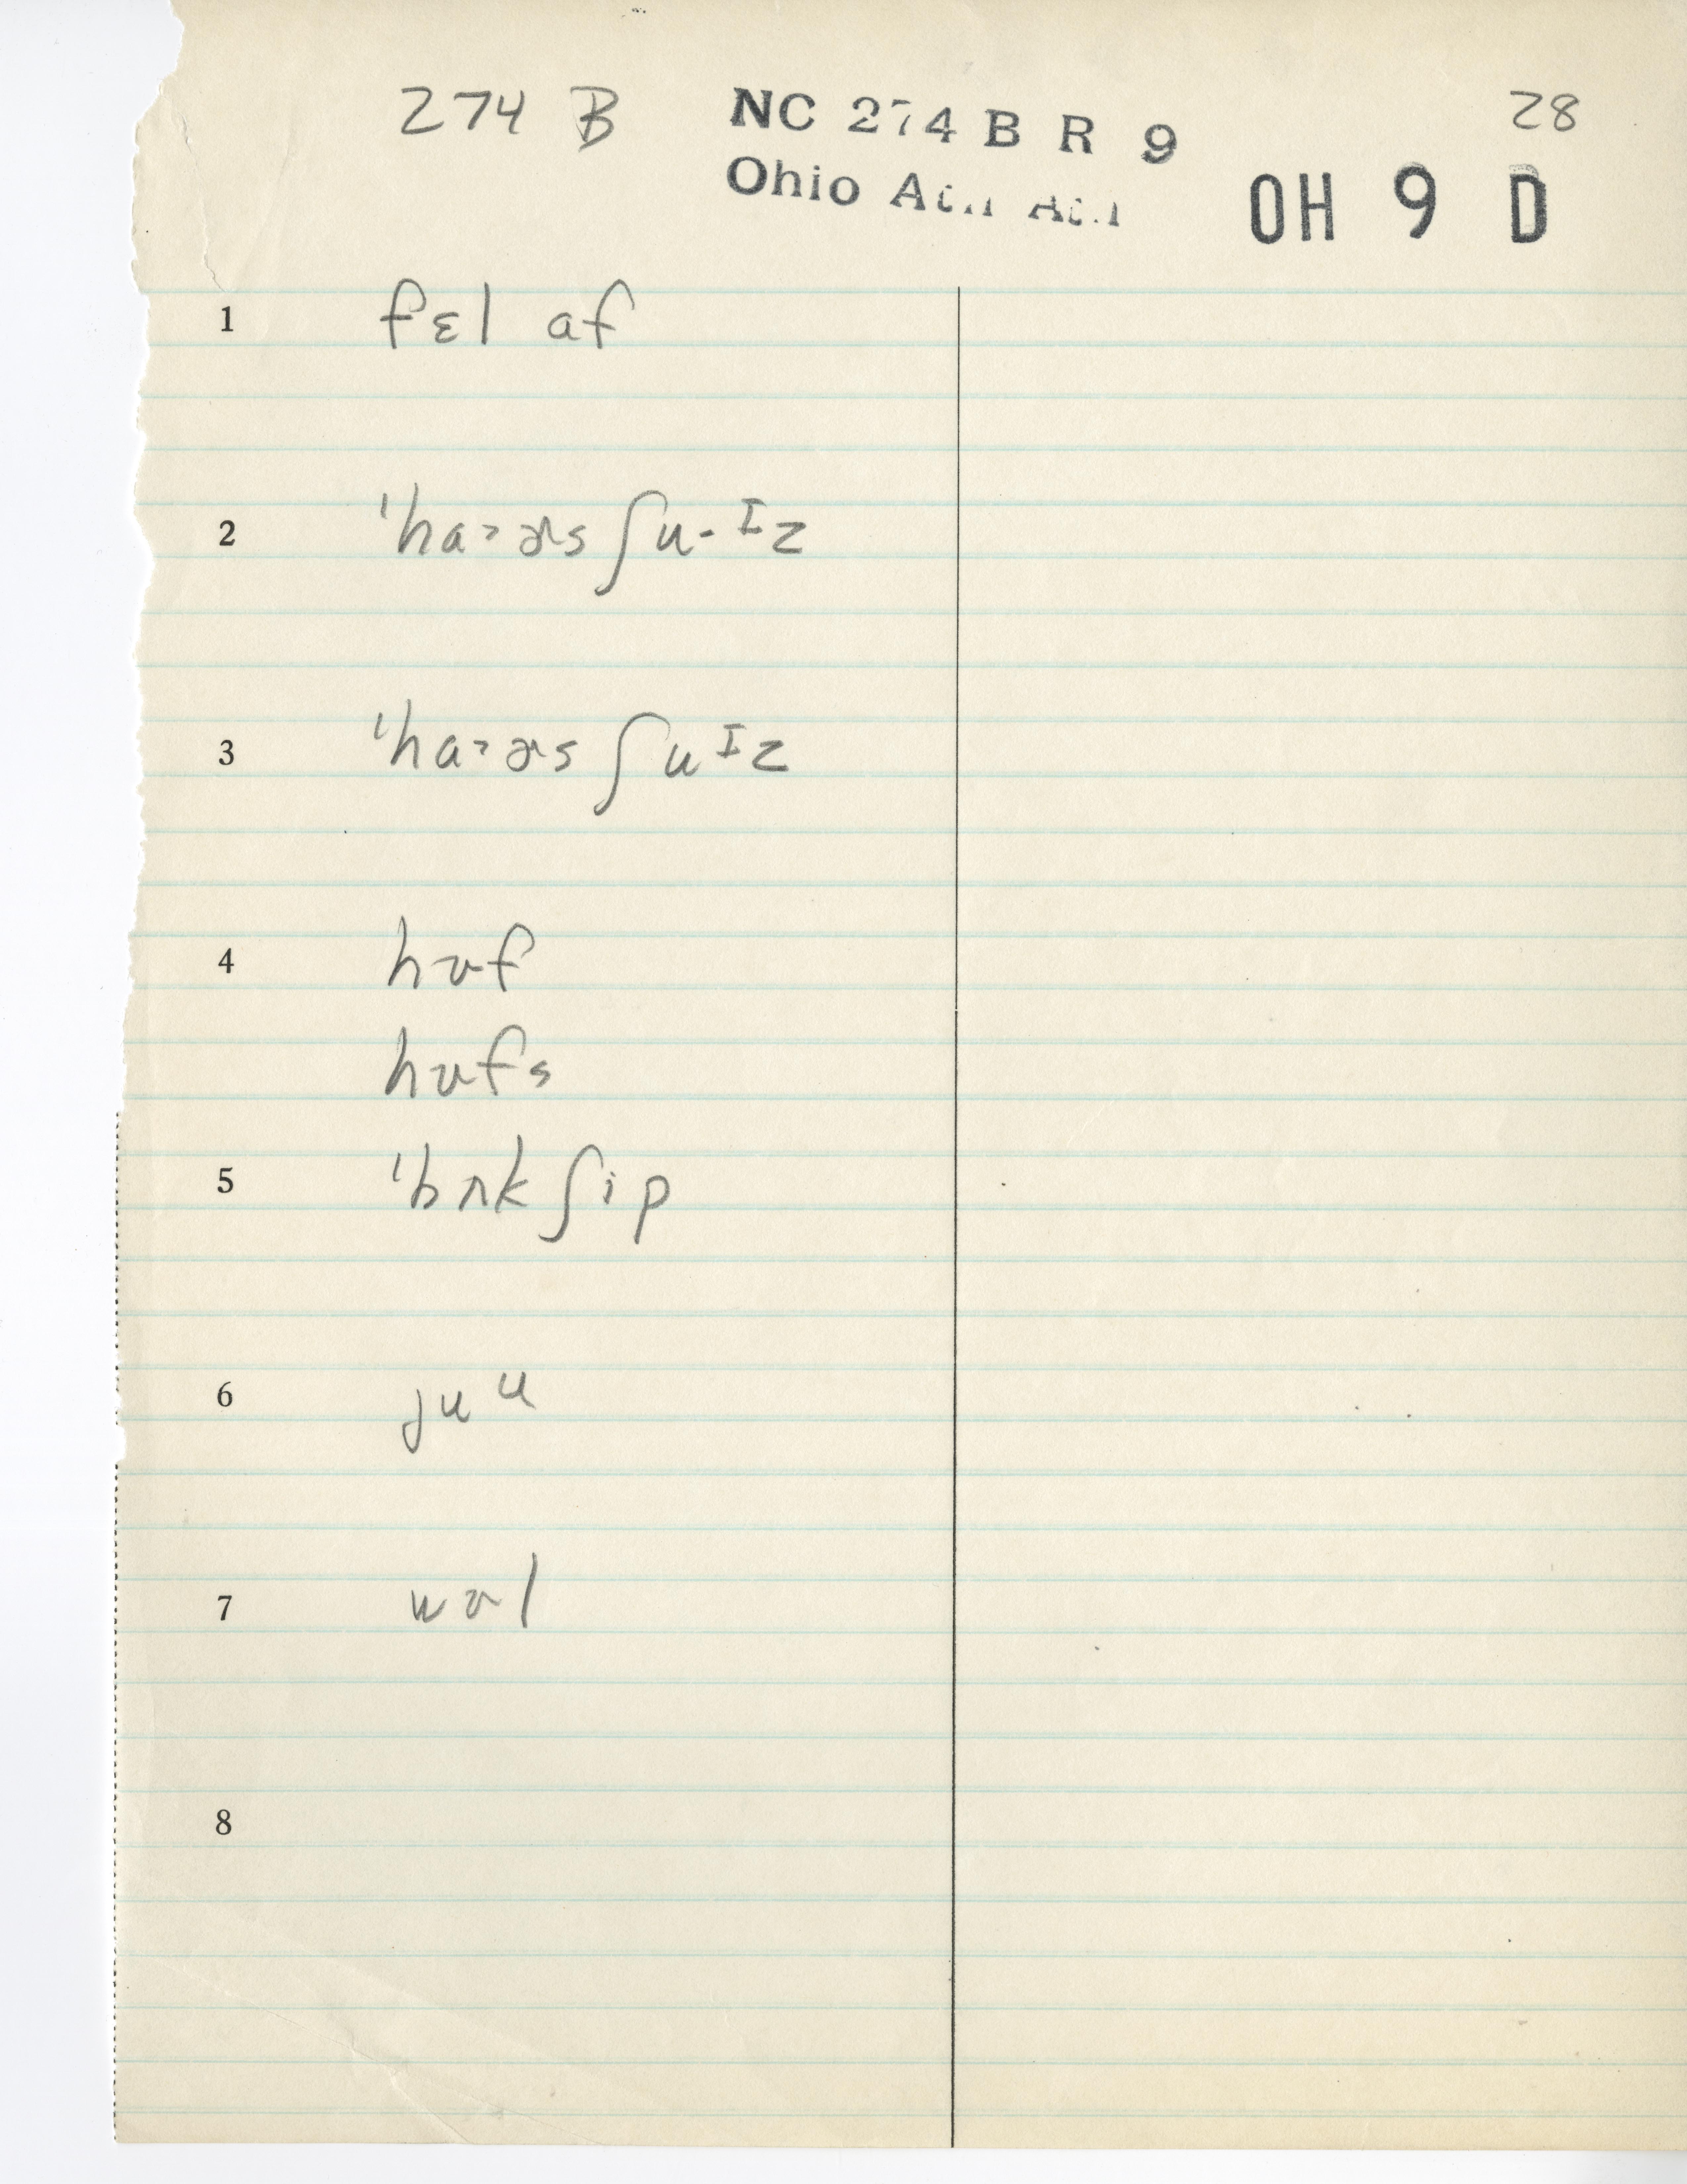 274 B NC 274 B R 9 28
Ohio OH 9 D
1 fɛl af
2 ˈhaɚs ʃu-ɪz
3 ˈhaɚs ʃuɪz
4 hʊf
hʊfs
5 ˈbʌk ʃip
6 juu
7 wʊl
8